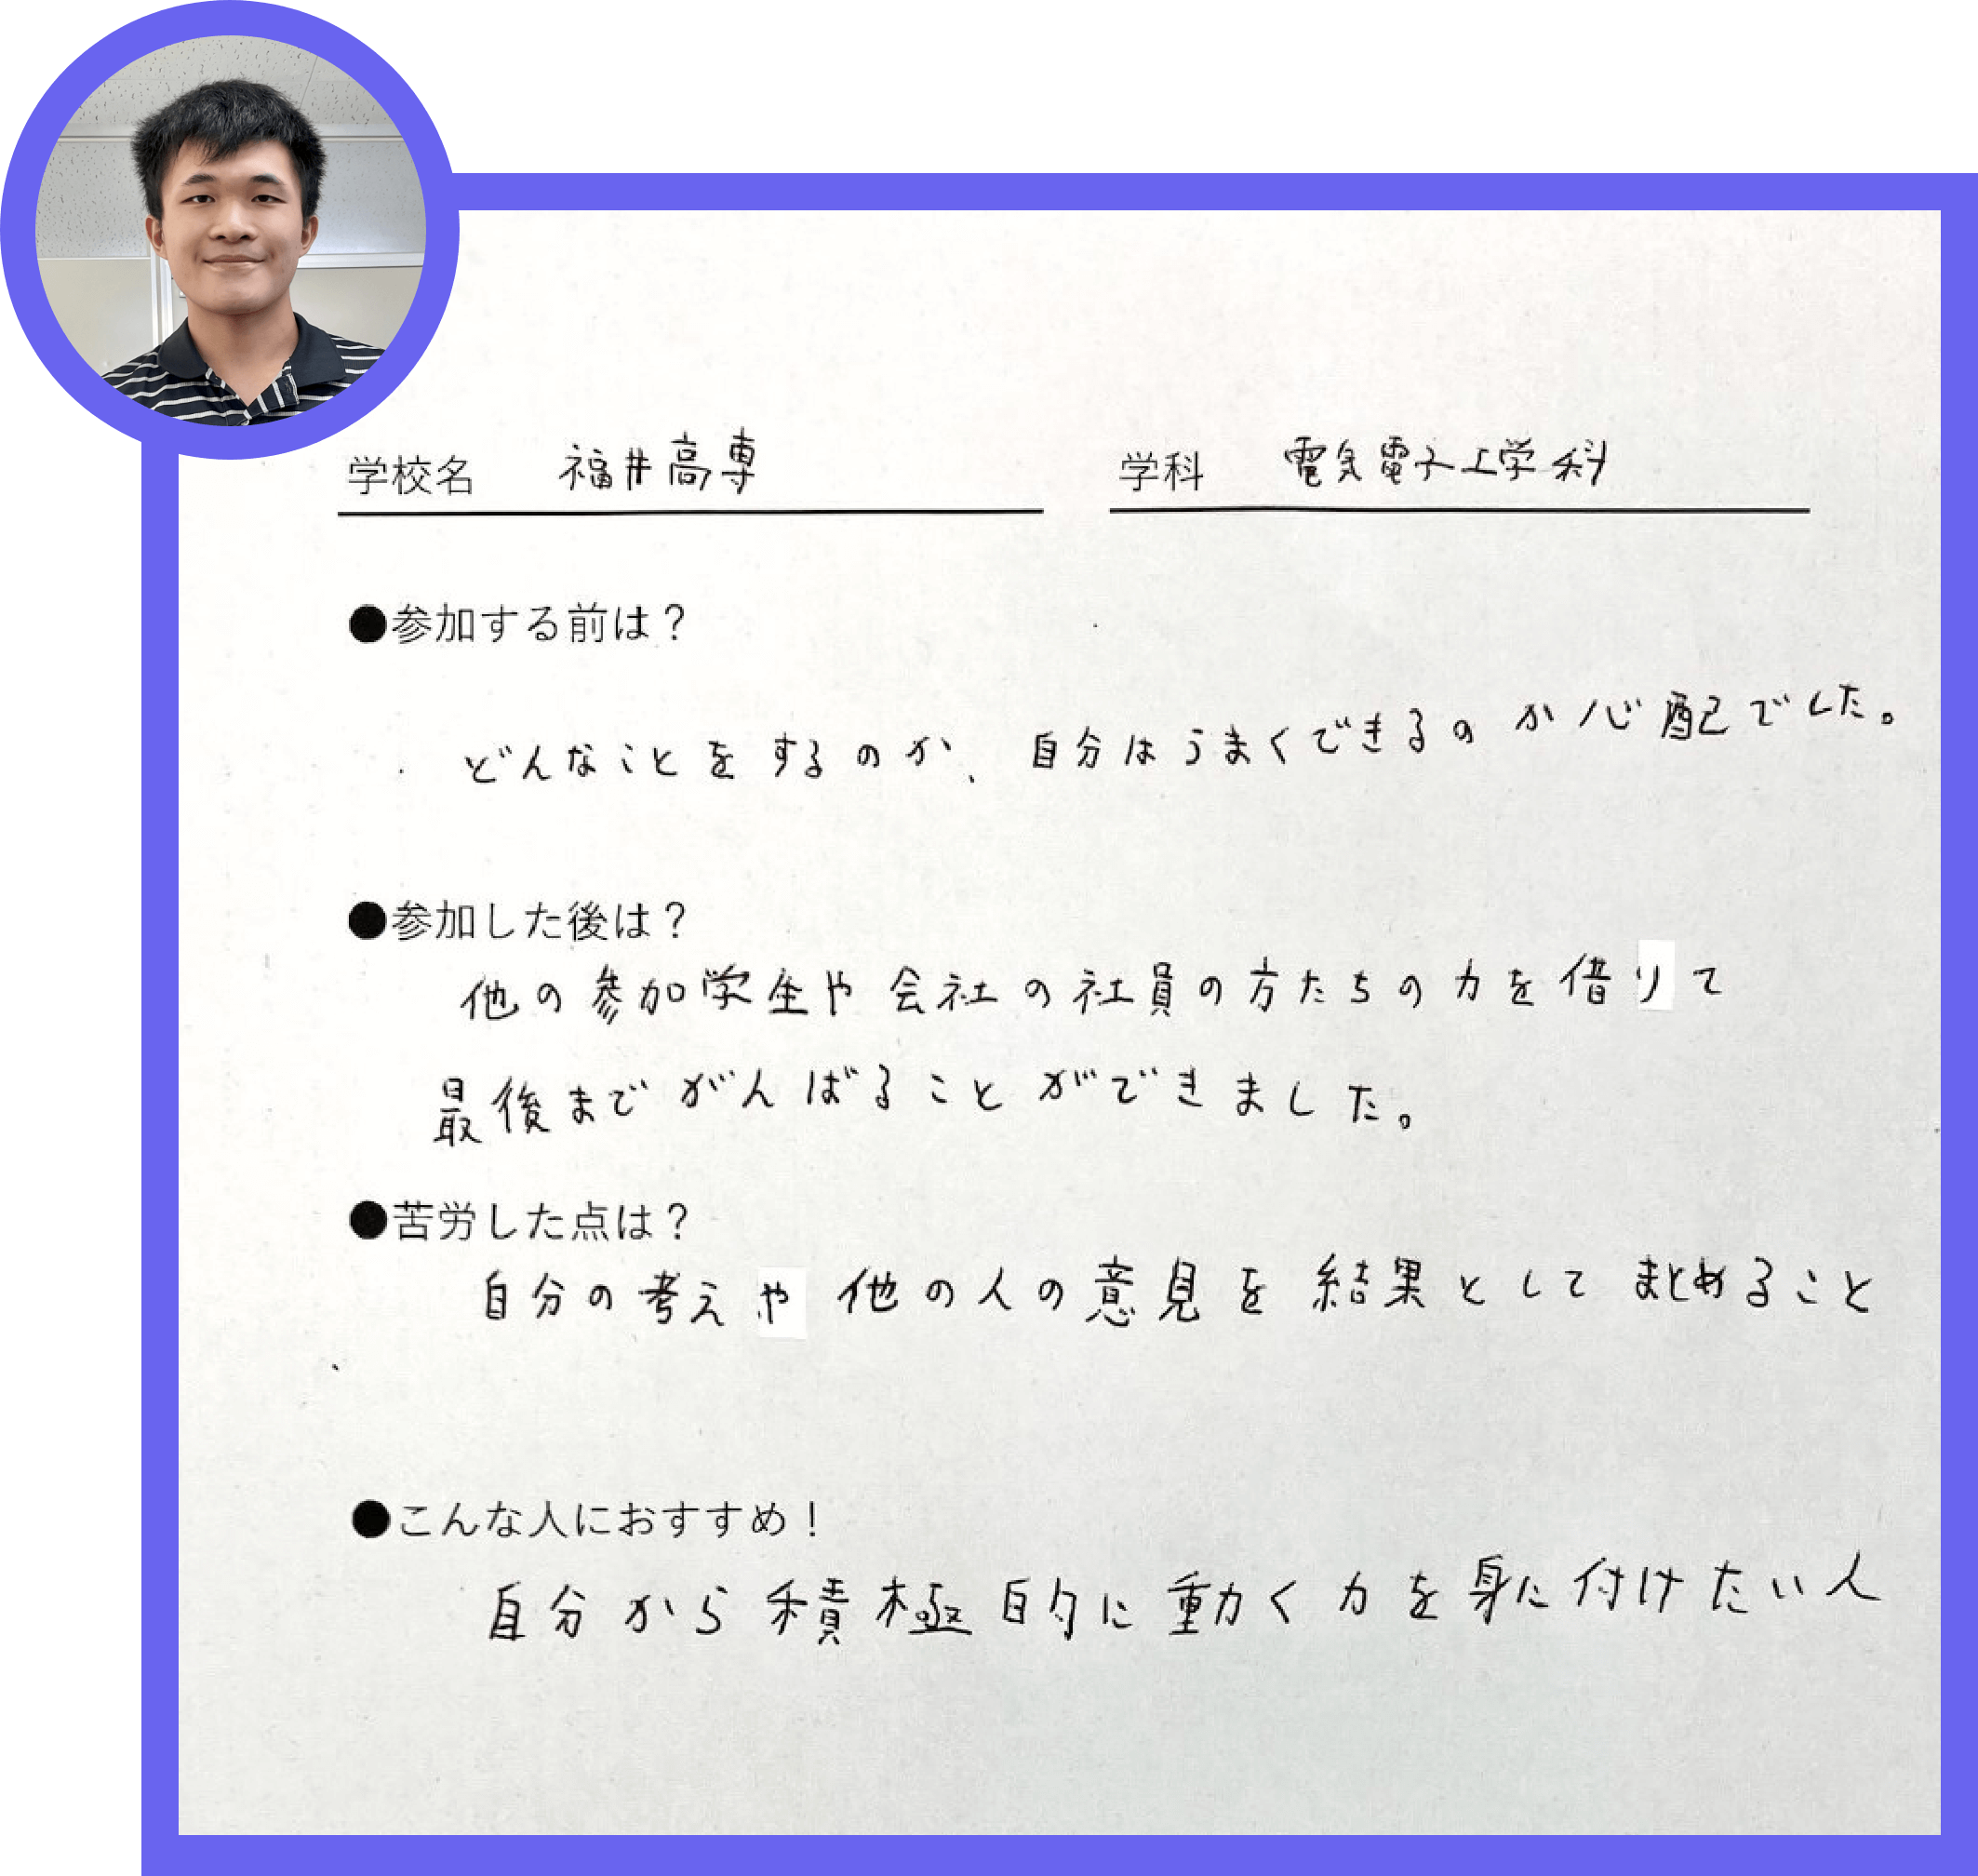 学校名 福井高専 学科 電気電子工学科
●参加する前は？
どんなことをするのか、自分はうまくできるのか心配でした。
●参加した後は？
他の参加学生や会社の社員の方たちの力を借りて
最後までがんばることができました。
●苦労した点は？
自分の考えや他の人の意見を結果としてまとめること
●こんな人におすすめ！
自分から積極的に動く力を身に付けたい人